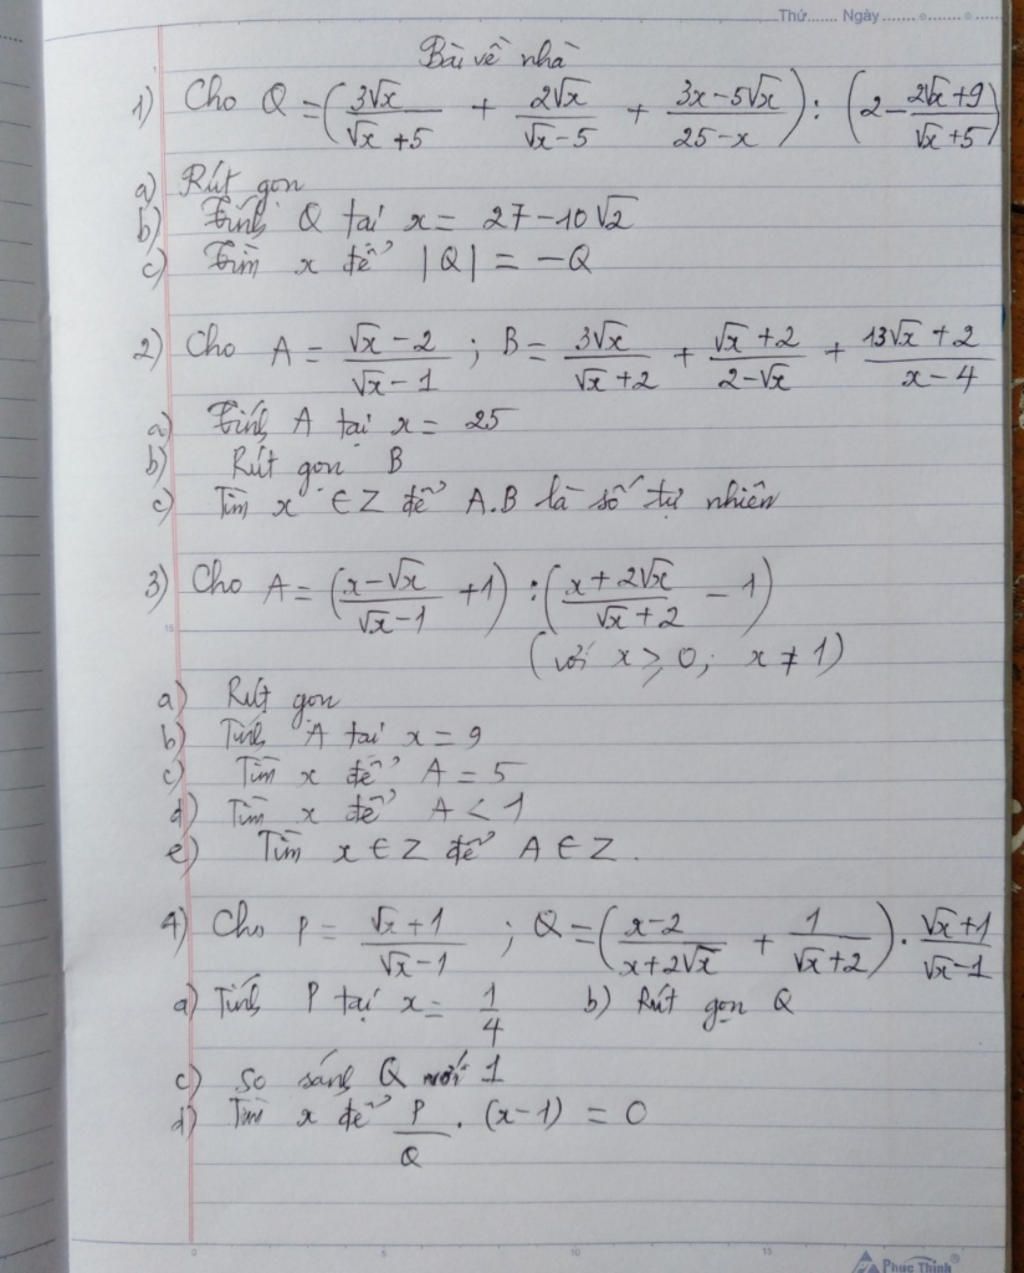 Thứ....... Ngày ........o........o.....
Bài về nhà
1) Cho Q = (3√x/(√x + 5) + 2√x/(√x − 5) + (3x − 5√x)/(25 − x)) : (2 − (2√x + 9)/(√x + 5))
a) Rút gọn
b) Tính Q tại x = 27 − 10√2
c) Tìm x để |Q| = −Q
2) Cho A = (√x − 2)/(√x − 1) ; B = 3√x/(√x + 2) + (√x + 2)/(2 − √x) + (13√x + 2)/(x − 4)
a) Tính A tại x = 25
b) Rút gọn B
c) Tìm x ∈ Z để A.B là số tự nhiên
3) Cho A = ((x − √x)/(√x − 1) + 1) : ((x + 2√x)/(√x + 2) − 1)
(với x ⩾ 0; x ≠ 1)
a) Rút gọn
b) Tính A tại x = 9
c) Tìm x để A = 5
d) Tìm x để A < 1
e) Tìm x ∈ Z để A ∈ Z.
4) Cho P = (√x + 1)/(√x − 1) ; Q = ((x − 2)/(x + 2√x) + 1/(√x + 2)) . (√x + 1)/(√x − 1)
a) Tính P tại x = 1/4 b) Rút gọn Q
c) So sánh Q với 1
d) Tìm x để P/Q . (x − 1) = 0
0 5 10 15
Phuc Thinh®